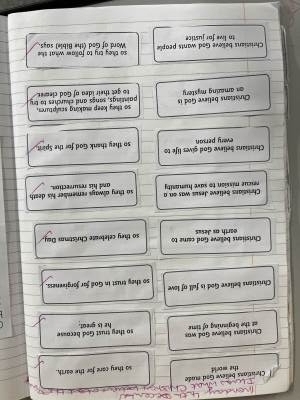 Christians believe God made
the world
so they care for the earth.
Christians believe God was
at the beginning of time
so they trust God because
he is great.
Christians believe God is full of love
so they trust in God for forgiveness.
Christians believe God came to
earth as Jesus
so they celebrate Christmas Day.
Christians believe Jesus was on a
rescue mission to save humanity
so they always remember his death
and his resurrection.
Christians believe God gives life to
every person
so they thank God for the Spirit.
Christians believe God is
an amazing mystery
so they keep making sculptures,
paintings, songs and churches to try
to get their idea of God clearer.
Christians believe God wants people
to live for justice
so they try to follow what the
Word of God (the Bible) says.